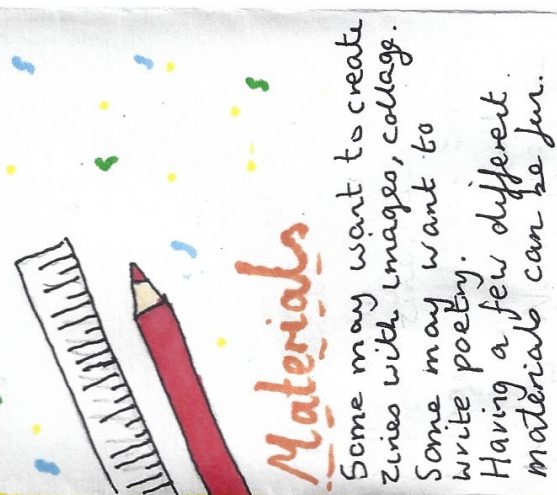 Materials
Some may want to create
zines with images, collage.
Some may want to
write poetry.
Having a few different
materials can be fun.